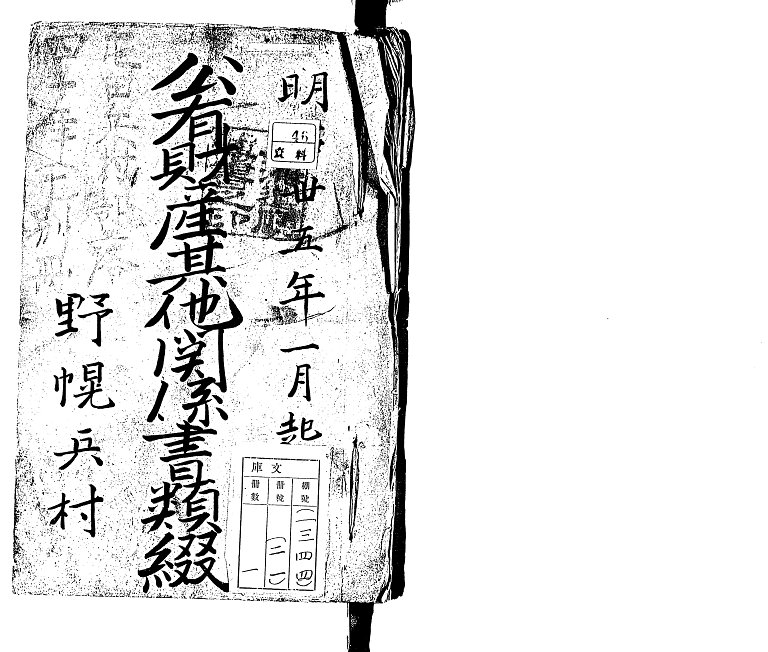 明治廿五年一月起
46
資料
公有財産其他関係書類綴
野幌兵村
文庫
棚號
(一三四四)
冊號
(二一)
冊數
一